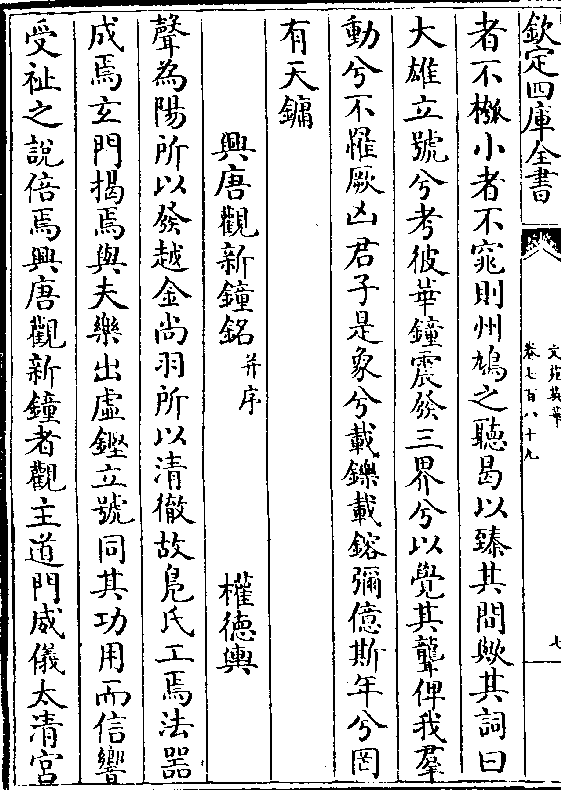 欽定四庫全書
文苑英華
卷七百八十九
七
者不槬小者不窕則州鳩之聽曷以臻其間歟其詞曰
大雄立號兮考彼華鐘震發三界兮以覺其聾俾我羣
動兮不罹厥凶君子是象兮載鑠載鎔彌億斯年兮罔
有天鏞
興唐觀新鐘銘并序 權德輿
聲為陽所以發越金尚羽所以清徹故鳧氏工焉法器
成焉玄門揭焉與夫樂出虛鏗立號同其功用而信響
受祉之說倍焉興唐觀新鐘者觀主道門威儀太清宮